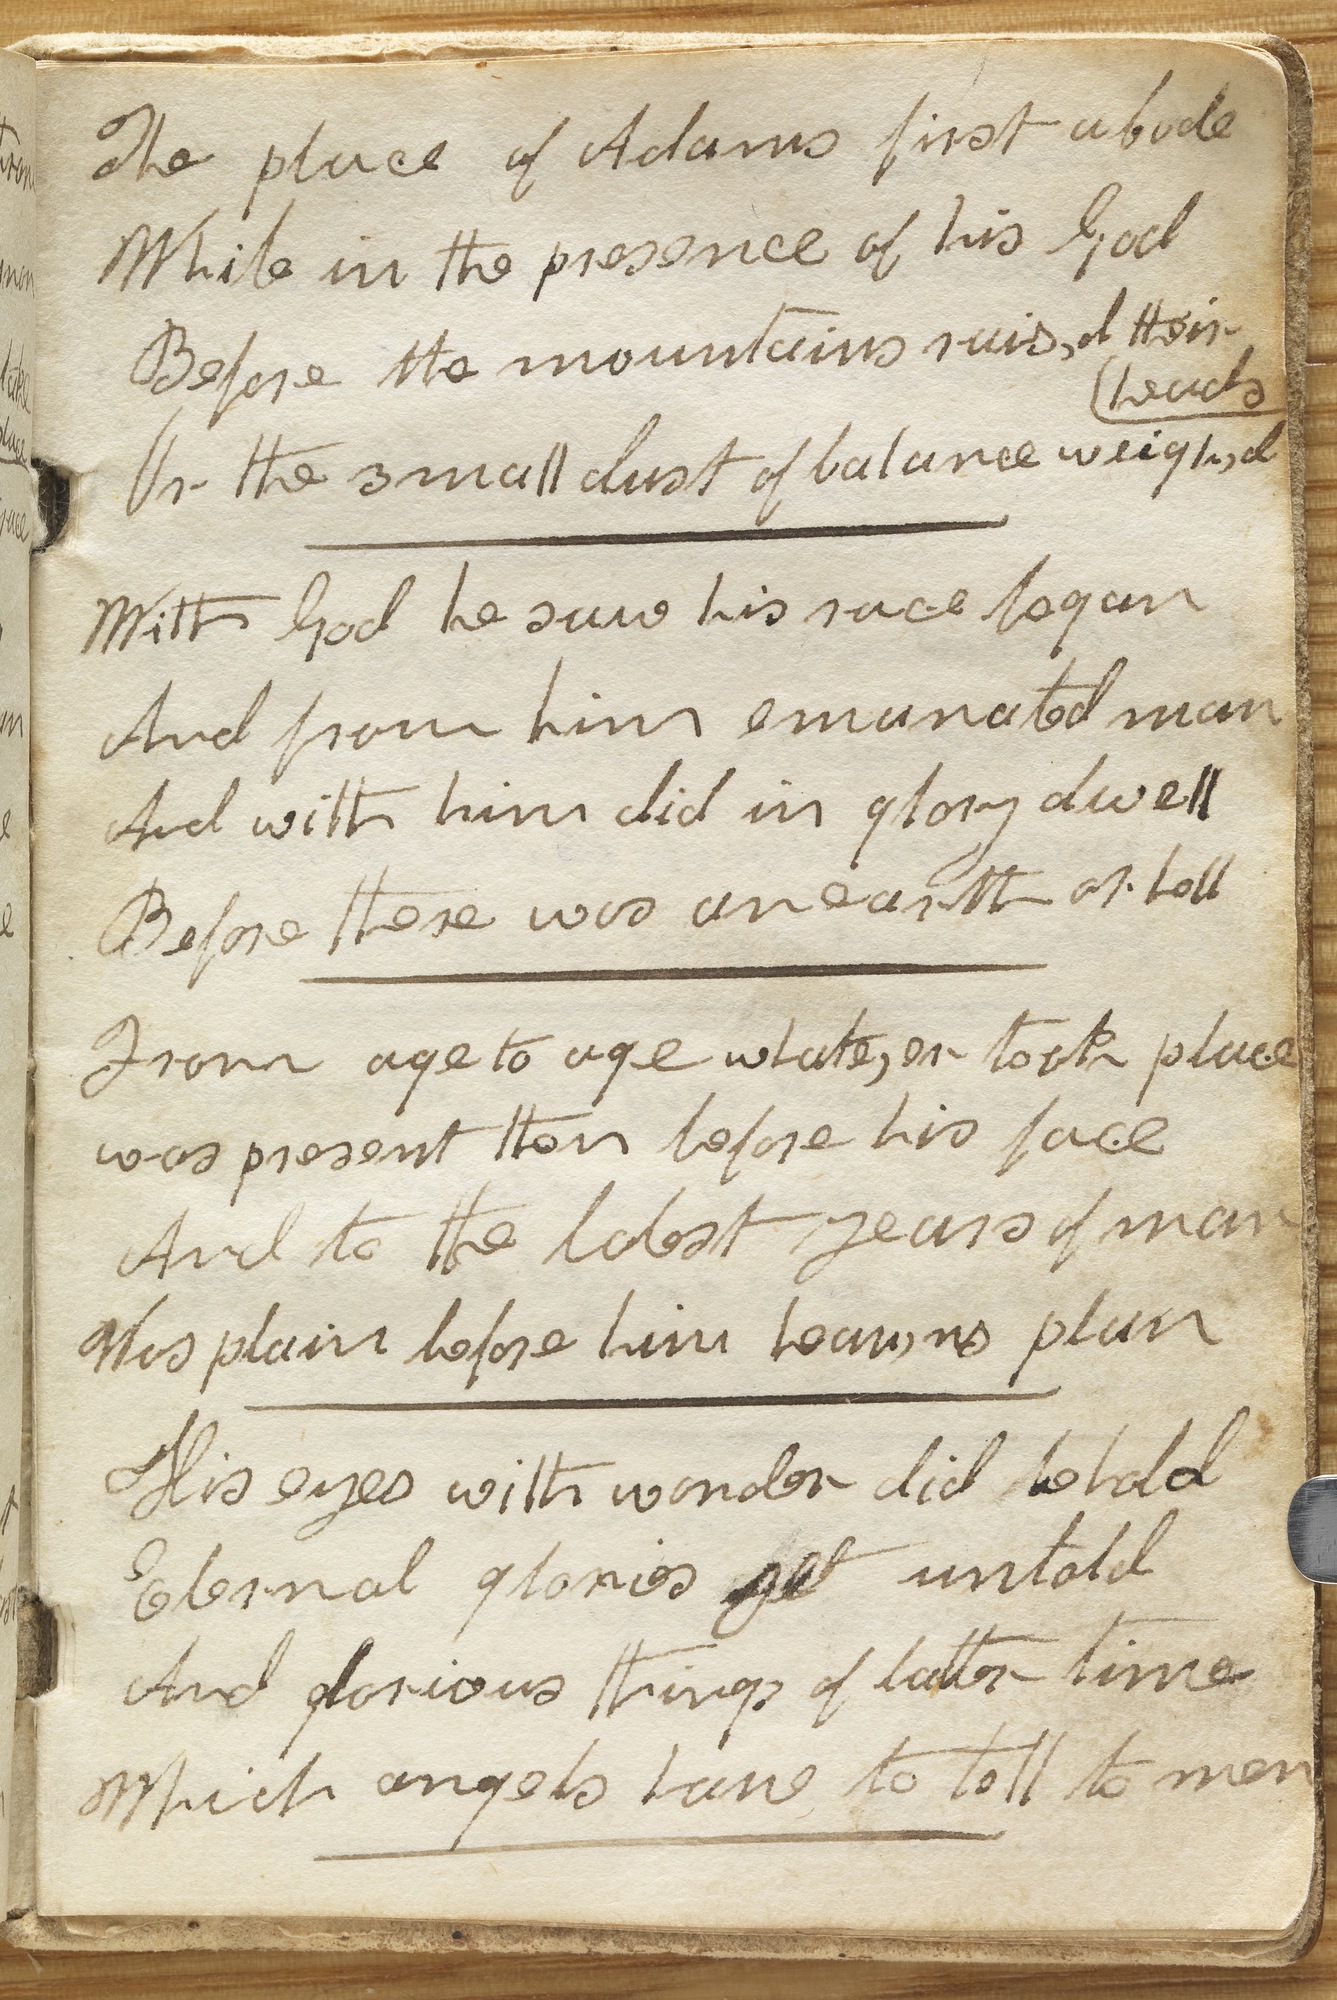 The place of Adams first abode
While in the presence of his God
Before the mountains rais,d their
(heads
Or the small dust of balance weigh,d
With God he saw his race began
And from him emanated man
And with him did in glory dwell
Before there was an earth or hell
From age to age whate,er took place
was present then before his face
And to the latest years of man
Was plain before him heav,ns plan
His eyes with wonder did behold
Eternal glories yet untold
And glorious things of latter time
Which angels have to tell to men